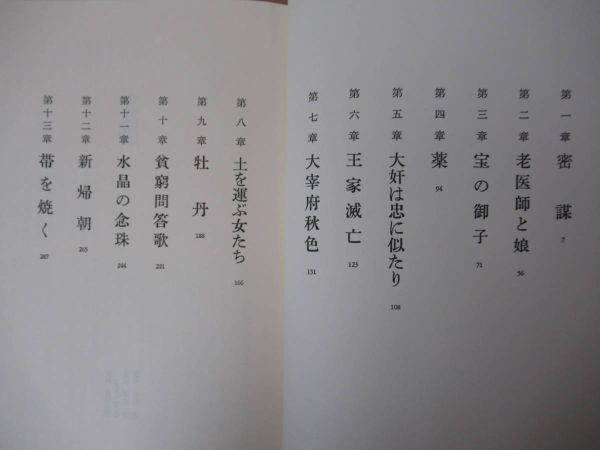 第一章 密謀 7
第二章 老医師と娘 56
第三章 宝の御子 71
第四章 薬 94
第五章 大奸は忠に似たり 108
第六章 王家滅亡 123
第七章 大宰府秋色 151
第八章 土を運ぶ女たち 166
第九章 牡丹 188
第十章 貧窮問答歌 221
第十一章 水晶の念珠 244
第十二章 新帰朝 265
第十三章 帯を焼く 287